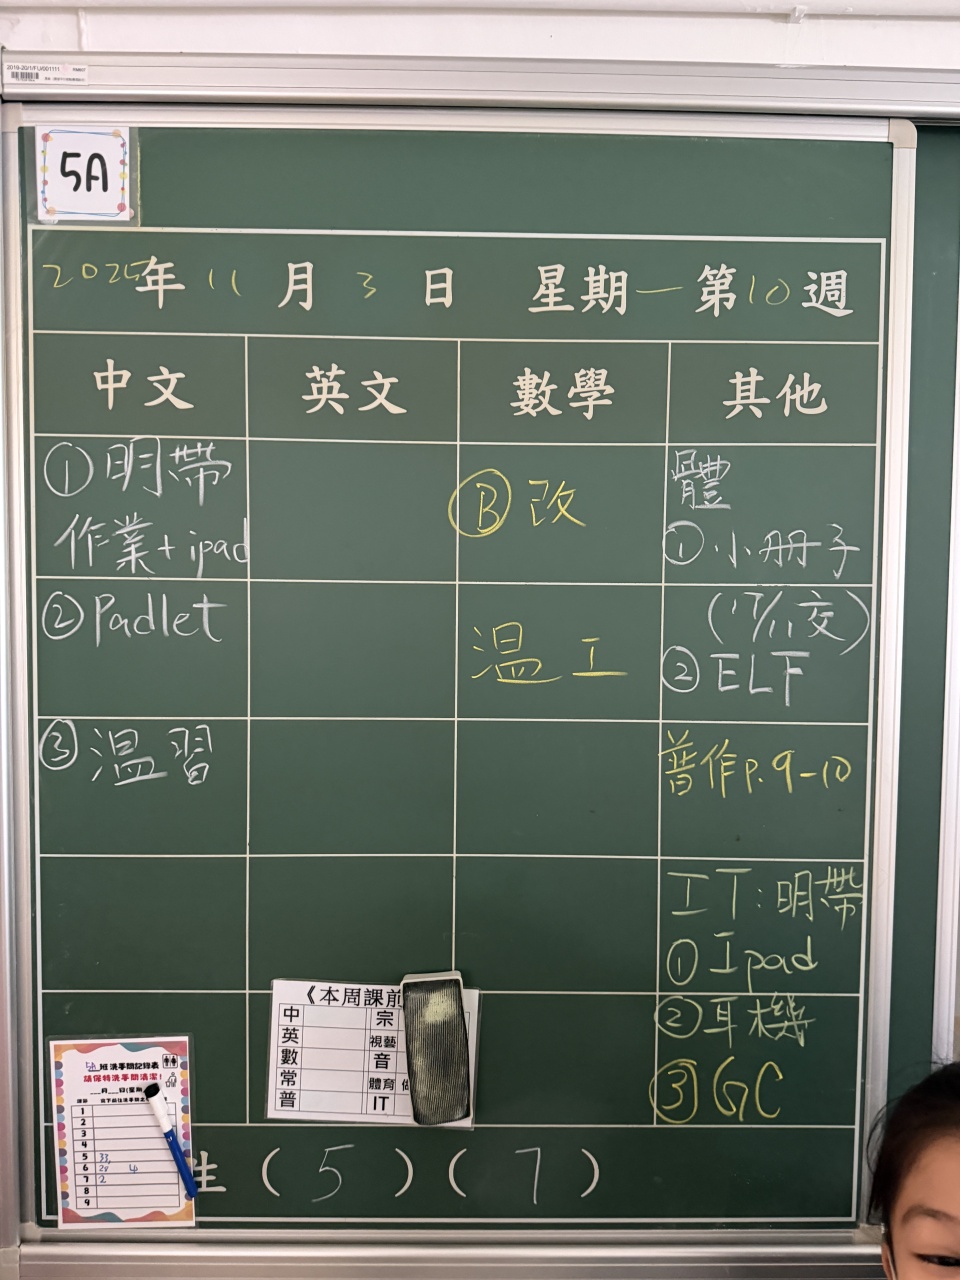 2019-20/1/FU/001111
5A
2025年 11 月 3 日 星期一 第10週
中文 英文 數學 其他
①明帶
作業+ipad
②Padlet
③溫習
Ⓑ 改
溫 工
體
①小冊子
(17/11交)
②ELF
普作p.9-10
IT:明帶
①Ipad
②耳機
③GC
《本周課前
中 宗
英 視藝
數 音
常 體育
普 IT
5A 班洗手間記錄表
請保持洗手間清潔!
1
2
3
4
5 33,
6 28 4
7 2
8
9
生 (5)(7)